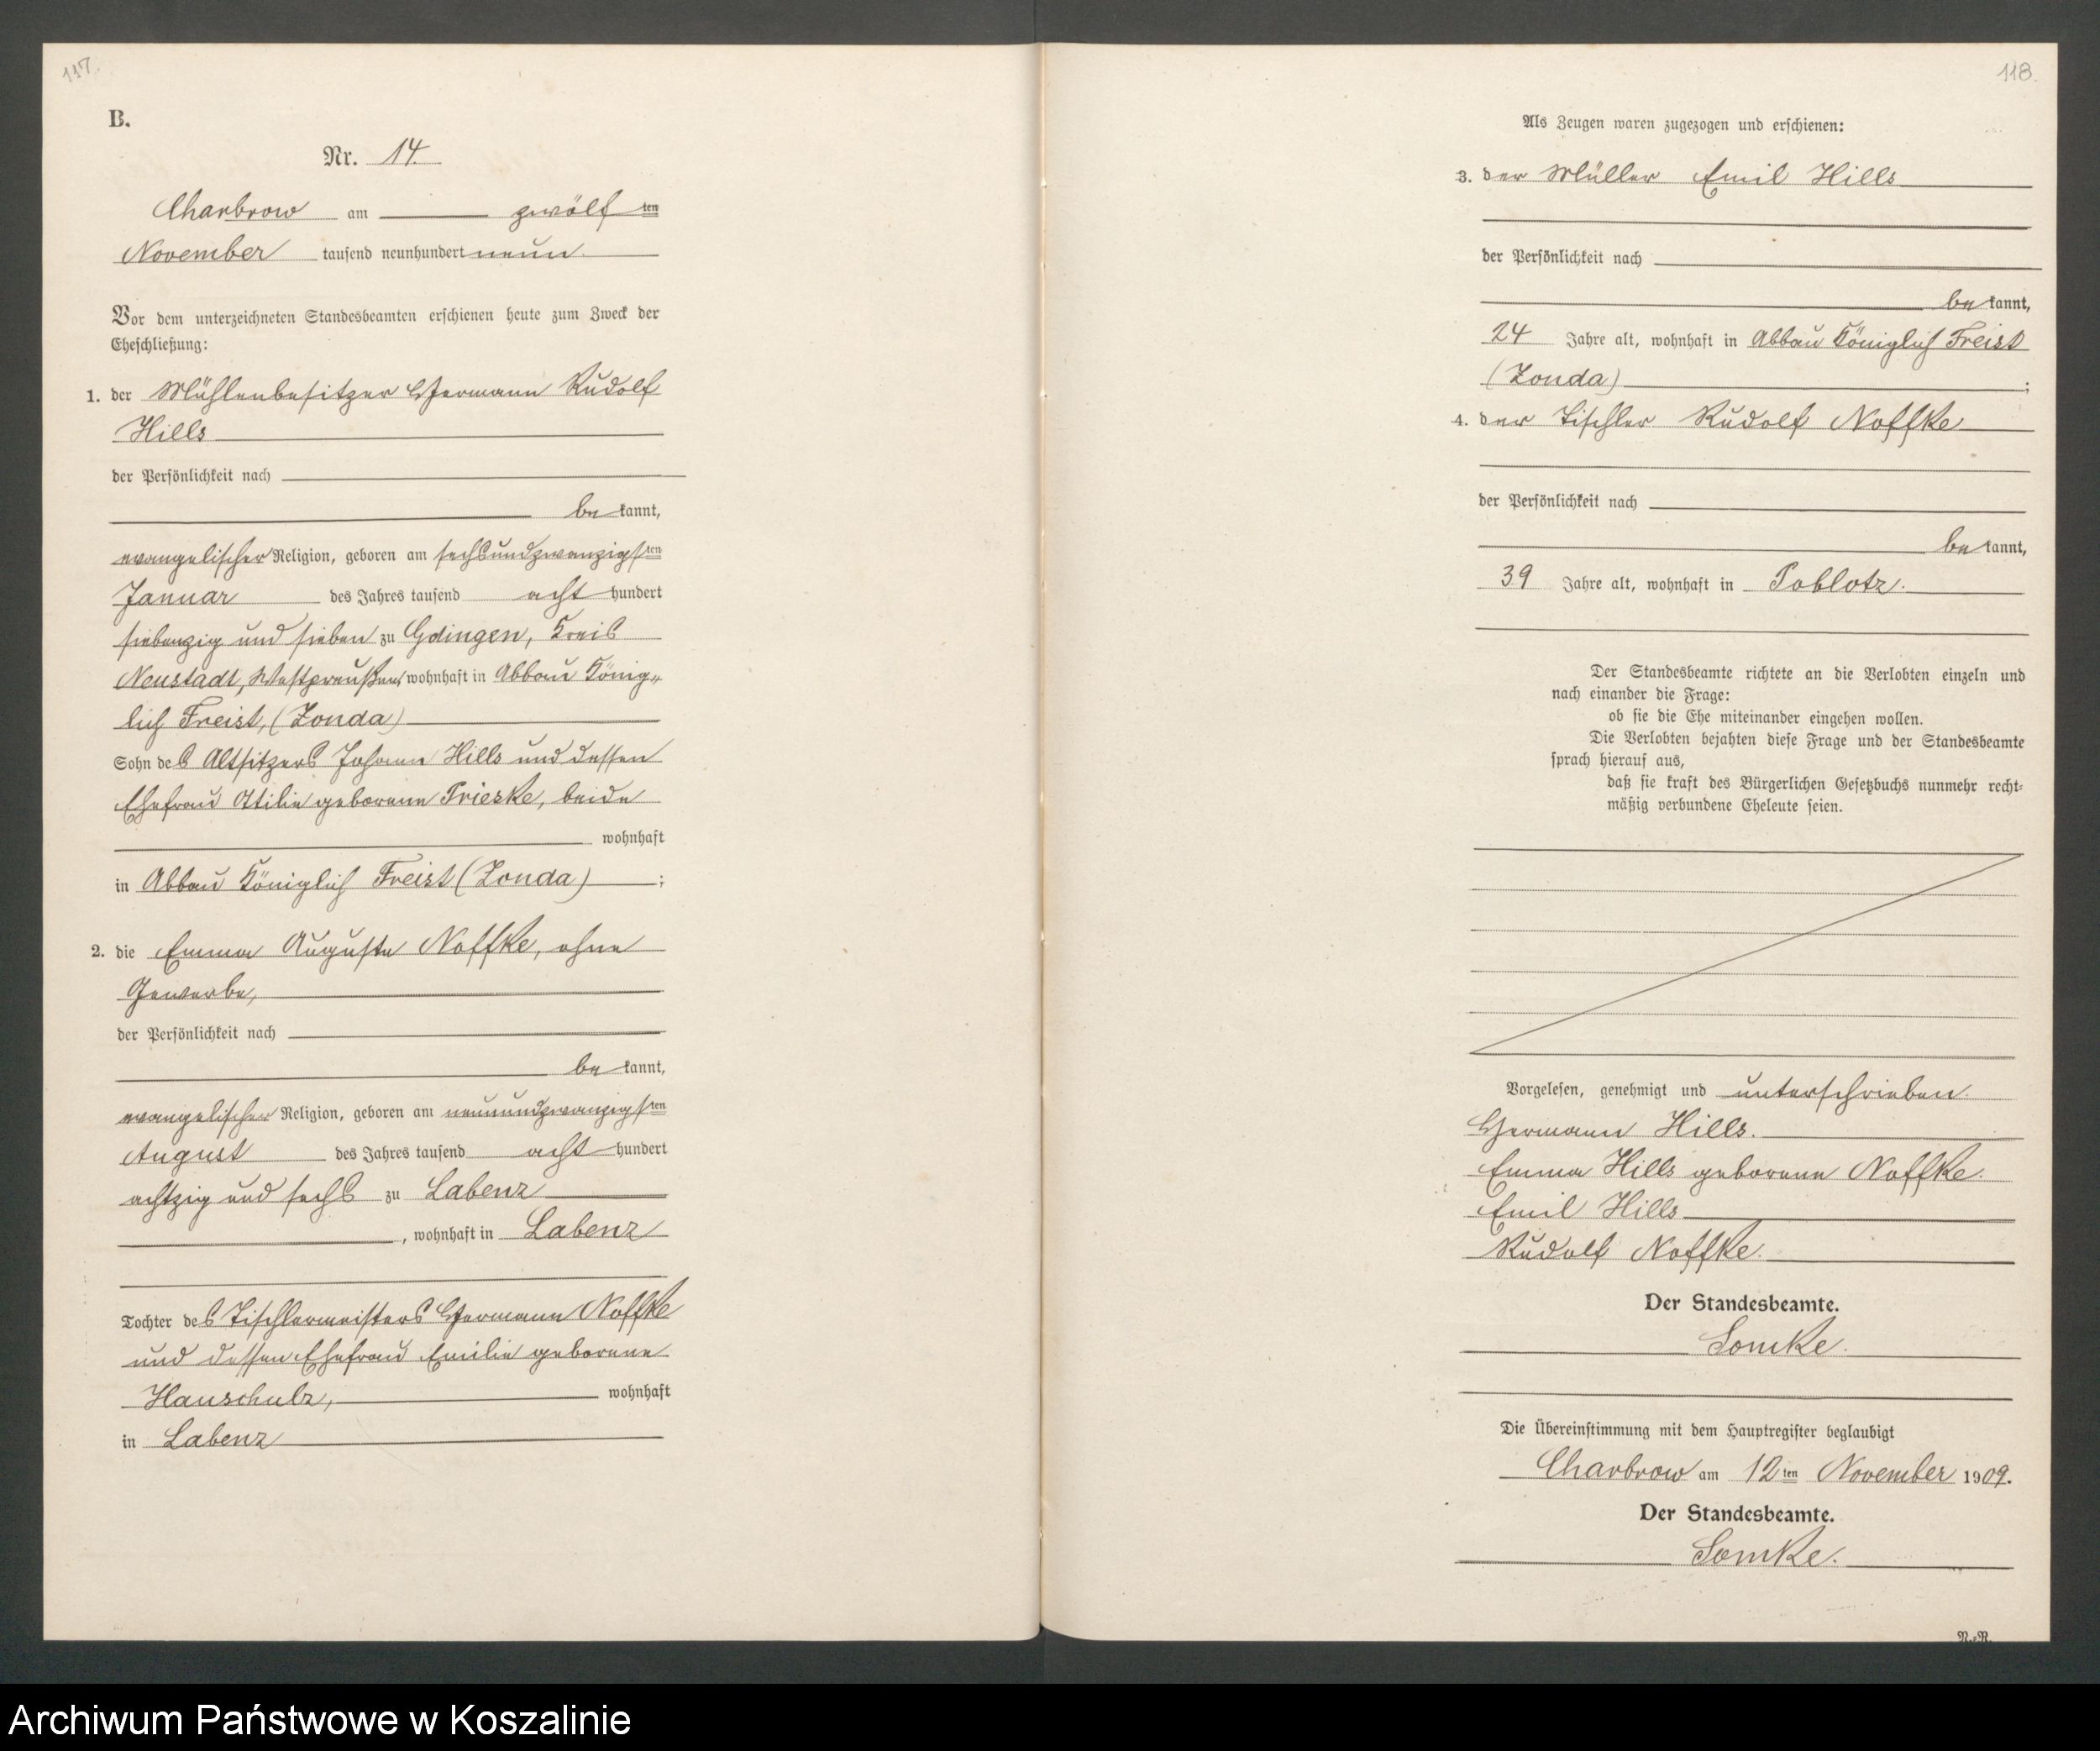 117.
B.
Nr. 14.
Charbrow am zwölf ten
November tausend neunhundert neun.
Vor dem unterzeichneten Standesbeamten erschienen heute zum Zweck der
Eheschließung:
1. der Mühlenbesitzer Hermann Rudolf
Hills
der Persönlichkeit nach
be kannt,
evangelischer Religion, geboren am sechsundzwanzigs ten
Januar des Jahres tausend acht hundert
siebenzig und sieben zu Gdingen, Kreis
Neustadt, Westpreußen, wohnhaft in Abbau König„
lich Freist, (Zonda)
Sohn des Altsitzers Johann Hills und dessen
Ehefrau Otilie geborene Prieske, beide
wohnhaft
in Abbau Königlich Freist (Zonda) ;
2. die Emma Auguste Noffke, ohne
Gewerbe,
der Persönlichkeit nach
be kannt,
evangelischer Religion, geboren am neunundzwanzigs ten
August des Jahres tausend acht hundert
achtzig und sechs zu Labenz
, wohnhaft in Labenz
Tochter des Tischlermeisters Hermann Noffke
und dessen Ehefrau Emilie geborene
Hauschulz, wohnhaft
in Labenz
118.
Als Zeugen waren zugezogen und erschienen:
3. der Müller Emil Hills
der Persönlichkeit nach
be kannt,
24 Jahre alt, wohnhaft in Abbau Königlich Freist
(Zonda) ;
4. der Tischler Rudolf Noffke
der Persönlichkeit nach
be kannt,
39 Jahre alt, wohnhaft in Poblotz.
Der Standesbeamte richtete an die Verlobten einzeln und
nach einander die Frage:
ob sie die Ehe miteinander eingehen wollen.
Die Verlobten bejahten diese Frage und der Standesbeamte
sprach hierauf aus,
daß sie kraft des Bürgerlichen Gesetzbuchs nunmehr recht-
mäßig verbundene Eheleute seien.
Vorgelesen, genehmigt und unterschrieben.
Hermann Hills.
Emma Hills geborene Noffke.
Emil Hills
Rudolf Noffke.
Der Standesbeamte.
Lomke.
Die Übereinstimmung mit dem Hauptregister beglaubigt
Charbrow am 12 ten November 1909.
Der Standesbeamte.
Lomke.
N.-R.
Archiwum Państwowe w Koszalinie